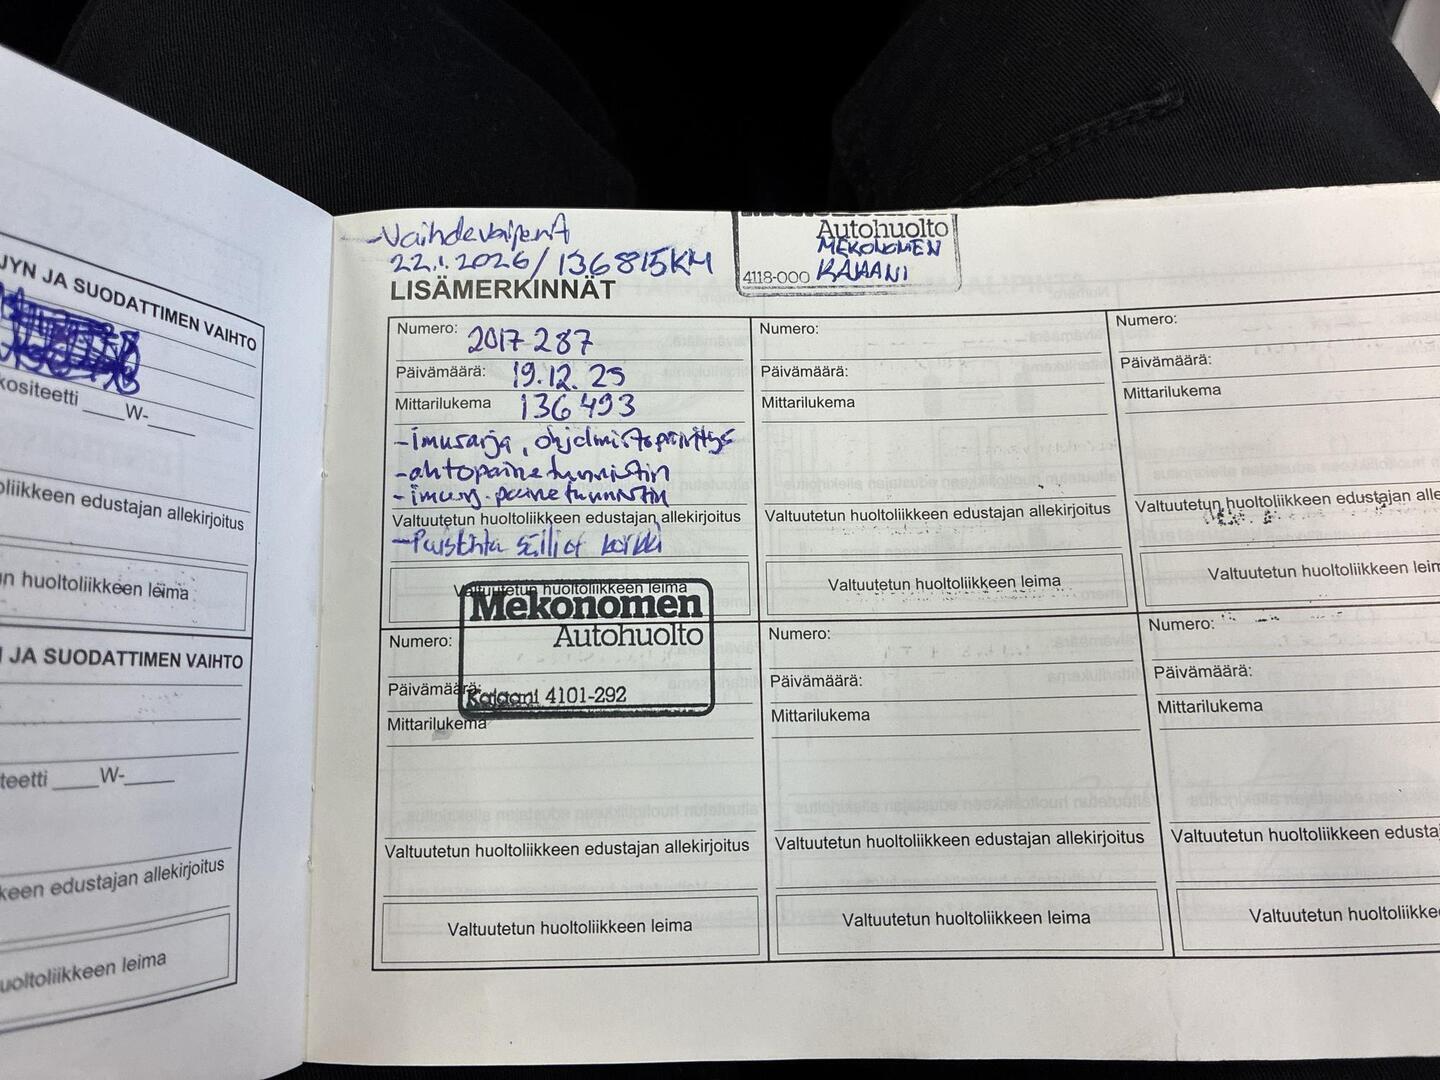 JYN JA SUODATTIMEN VAIHTO
kositeetti ____W-____
oliikkeen edustajan allekirjoitus
n huoltoliikkeen leima
I JA SUODATTIMEN VAIHTO
teetti ____W-____
keen edustajan allekirjoitus
uoltoliikkeen leima
-Vaihdevaijerit
22.1.2026/136815KM
Autohuolto
MEKONOMEN
4118-000 KAJAANI
LISÄMERKINNÄT
Numero: 2017287
Päivämäärä: 19.12.25
Mittarilukema 136493
-imusarja, ohjelmistopäivitys
-ahtopainetunnistin
-imusj.painetunnistin
Valtuutetun huoltoliikkeen edustajan allekirjoitus
-Paisunta säiliöt korkki
Valtuutetun huoltoliikkeen leima
Mekonomen
Autohuolto
Kajaani 4101-292
Numero:
Päivämäärä:
Mittarilukema
Valtuutetun huoltoliikkeen edustajan allekirjoitus
Valtuutetun huoltoliikkeen leima
Numero:
Päivämäärä:
Mittarilukema
Valtuutetun huoltoliikkeen edustajan allekirjoitus
Valtuutetun huoltoliikkeen leima
Numero:
Päivämäärä:
Mittarilukema
Valtuutetun huoltoliikkeen edustajan allekirjoitus
Valtuutetun huoltoliikkeen leima
Numero:
Päivämäärä:
Mittarilukema
Valtuutetun huoltoliikkeen edustajan alle
Valtuutetun huoltoliikkeen leim
Numero:
Päivämäärä:
Mittarilukema
Valtuutetun huoltoliikkeen edusta
Valtuutetun huoltoliikke